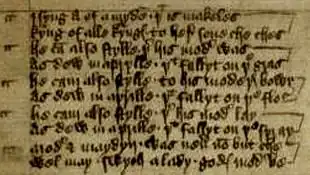 I syng A of a mydē · þt is makeles
kyng of alle kyngs to her sone che ches
he cā also stylle þer his mod was
as dew in aprylle · þt fallyt on þe gras
he cam also stylle · to his moders bowr
as dew in aprille · þt fallyt on þe flor
he cam also stylle · þer his mod lay
as dew in aprille · þt fallyt on þe spray
mod & maydyn · was non but che
wel may swych a lady · godes mod be